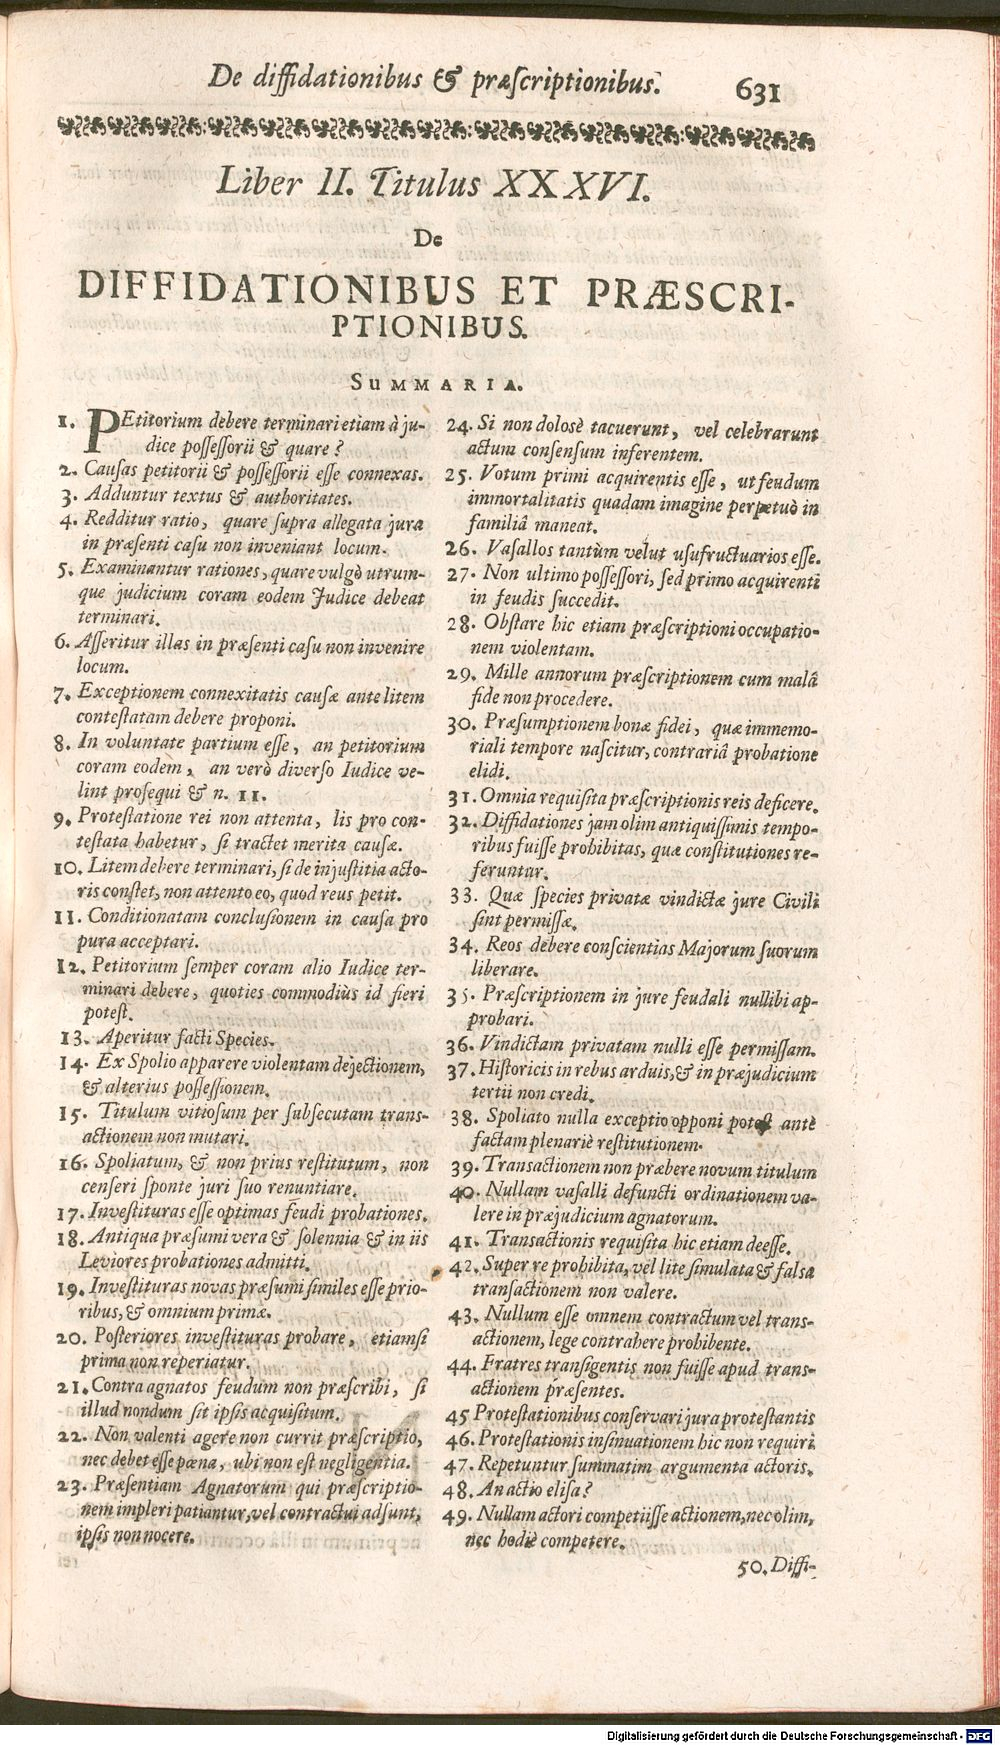 De diffidationibus & præſcriptionibus.
631
Liber II. Titulus XXXVI.
De
DIFFIDATIONIBUS ET PRÆSCRI-
PTIONIBUS.
SUMMARIA.
1. PEtitorium debere terminari etiam à ju-
dice poſſeſſorii & quare?
2. Cauſas petitorii & poſſeſſorii eſſe connexas.
3. Adduntur textus & authoritates.
4. Redditur ratio, quare ſupra allegata jura
in præſenti caſu non inveniant locum.
5. Examinantur rationes, quare vulgò utrum-
que judicium coram eodem Judice debeat
terminari.
6. Aſſeritur illas in præſenti caſu non invenire
locum.
7. Exceptionem connexitatis cauſæ ante litem
conteſtatam debere proponi.
8. In voluntate partium eſſe, an petitorium
coram eodem, an verò diverſo Iudice ve-
lint proſequi & n. 11.
9. Proteſtatione rei non attenta, lis pro con-
teſtata habetur, ſi tractet merita cauſæ.
10. Litem debere terminari, ſi de injuſtitia acto-
ris conſtet, non attento eo, quod reus petit.
11. Conditionatam concluſionem in cauſa pro
pura acceptari.
12. Petitorium ſemper coram alio Iudice ter-
minari debere, quoties commodiùs id fieri
poteſt.
13. Aperitur facti Species.
14. Ex Spolio apparere violentam dejectionem,
& alterius poſſeſſionem.
15. Titulum vitioſum per ſubſecutam trans-
actionem non mutari.
16. Spoliatum, & non prius reſtitutum, non
cenſeri ſponte juri ſuo renuntiare.
17. Inveſtituras eſſe optimas feudi probationes.
18. Antiqua præſumi vera & ſolennia & in iis
Leviores probationes admitti.
19. Inveſtituras novas præſumi ſimiles eſſe prio-
ribus, & omnium primæ.
20. Poſteriores inveſtituras probare, etiamſi
prima non reperiatur.
21. Contra agnatos feudum non præſcribi, ſi
illud nondum ſit ipſis acquiſitum.
22. Non valenti agere non currit præſcriptio,
nec debet eſſe pœna, ubi non eſt negligentia.
23. Præſentiam Agnatorum qui præſcriptio-
nem impleri patiantur, vel contractui adſunt,
ipſis non nocere.
24. Si non doloſè tacuerunt, vel celebrarunt
actum conſenſum inferentem.
25. Votum primi acquirentis eſſe, ut feudum
immortalitatis quadam imagine perpetuò in
familiâ maneat.
26. Vaſallos tantùm velut uſufructuarios eſſe.
27. Non ultimo poſſeſſori, ſed primo acquirenti
in feudis ſuccedit.
28. Obſtare hic etiam præſcriptioni occupatio-
nem violentam.
29. Mille annorum præſcriptionem cum malâ
fide non procedere.
30. Præſumptionem bonæ fidei, quæ immemo-
riali tempore naſcitur, contrariâ probatione
elidi.
31. Omnia requiſita præſcriptionis reis deficere.
32. Diffidationes jam olim antiquiſſimis tempo-
ribus fuiſſe prohibitas, quæ conſtitutiones re-
feruntur.
33. Quæ ſpecies privatæ vindictæ jure Civili
ſint permiſſæ.
34. Reos debere conſcientias Majorum ſuorum
liberare.
35. Præſcriptionem in jure feudali nullibi ap-
probari.
36. Vindictam privatam nulli eſſe permiſſam.
37. Hiſtoricis in rebus arduis, & in præjudicium
tertii non credi.
38. Spoliato nulla exceptio opponi poteſt antè
factam plenariè reſtitutionem.
39. Transactionem non præbere novum titulum
40. Nullam vaſalli defuncti ordinationem va-
lere in præjudicium agnatorum.
41. Transactionis requiſita hic etiam deeſſe.
42. Super re prohibita, vel lite ſimulata & falsa
transactionem non valere.
43. Nullum eſſe omnem contractum vel trans-
actionem, lege contrahere prohibente.
44. Fratres transigentis non fuiſſe apud trans-
actionem præſentes.
45 Proteſtationibus conſervari jura proteſtantis
46. Proteſtationis inſinuationem hic non requiri
47. Repetuntur ſummatim argumenta actoris.
48. An actio eliſa?
49. Nullam actori competiiſſe actionem, nec olim,
nec hodiè competere.
50. Diffi-
Digitalisierung gefördert durch die Deutsche Forschungsgemeinschaft - DFG